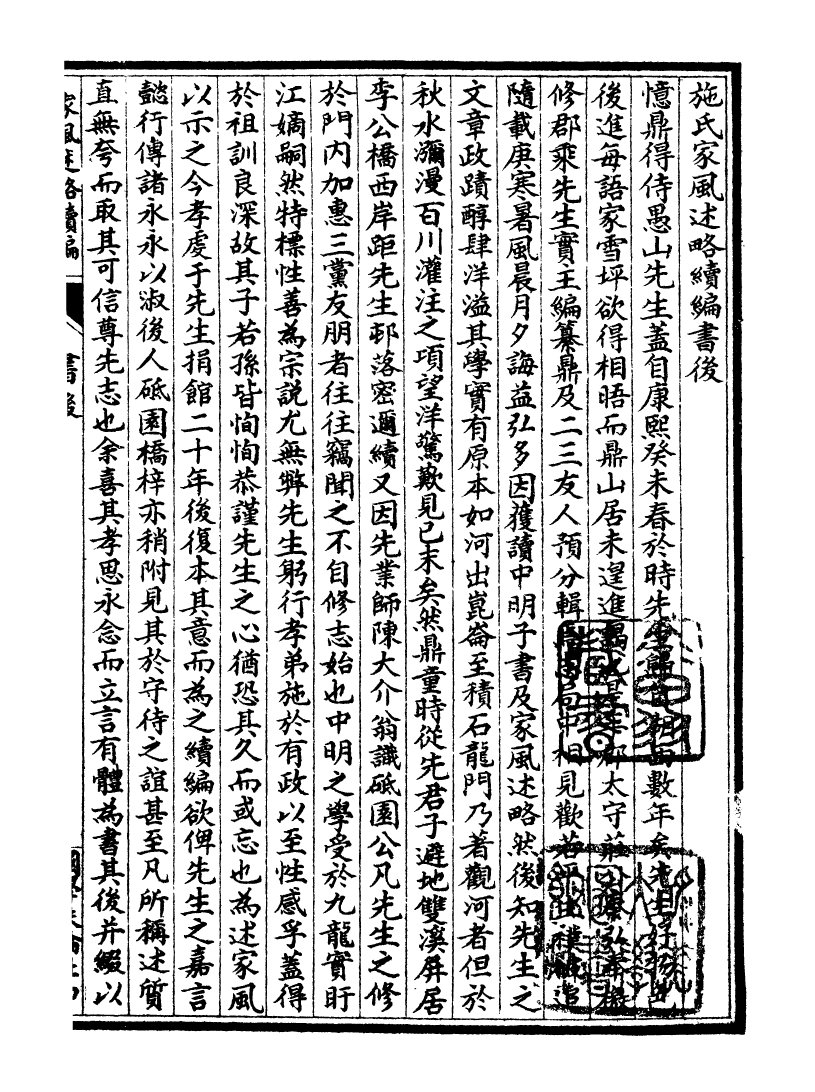 施氏家風述略續編書後
憶鼎得侍愚山先生蓋自康熙癸未春於時先數年矣先生
後進每語家雪坪欲得相晤而鼎山居未遑進太守莊
修郡乘先生實主編纂鼎及二三友人預分輯局中相見歡若
隨載庚寒暑風晨月夕誨益弘多因獲讀中明子書及家風述略然後知先生之
文章政蹟醇肆洋溢其學實有原本如河出崑崙至積石龍門乃著觀河者但於
秋水瀰漫百川灌注之項望洋驚歎見已末矣然鼎童時從先君子避地雙溪屏居
李公橋西岸距先生邨落密邇續又因先業師陳大介翁識砥園公凡先生之修
於門內加惠三黨友朋者往往竊聞之不自修志始也中明之學受於九龍實盱
江嫡嗣然特標性善為宗說尤無弊先生躬行孝弟施於有政以至性感孚蓋得
於祖訓良深故其子若孫皆恂恂恭謹先生之心猶恐其久而或忘也為述家風
以示之今孝虔于先生捐館二十年後復本其意而為之續編欲俾先生之嘉言
懿行傳諸永永以淑後人砥園橋梓亦稍附見其於守待之誼甚至凡所稱述質
直無夸而取其可信尊先志也余喜其孝思永念而立言有體為書其後并綴以
家風述略續編 書後